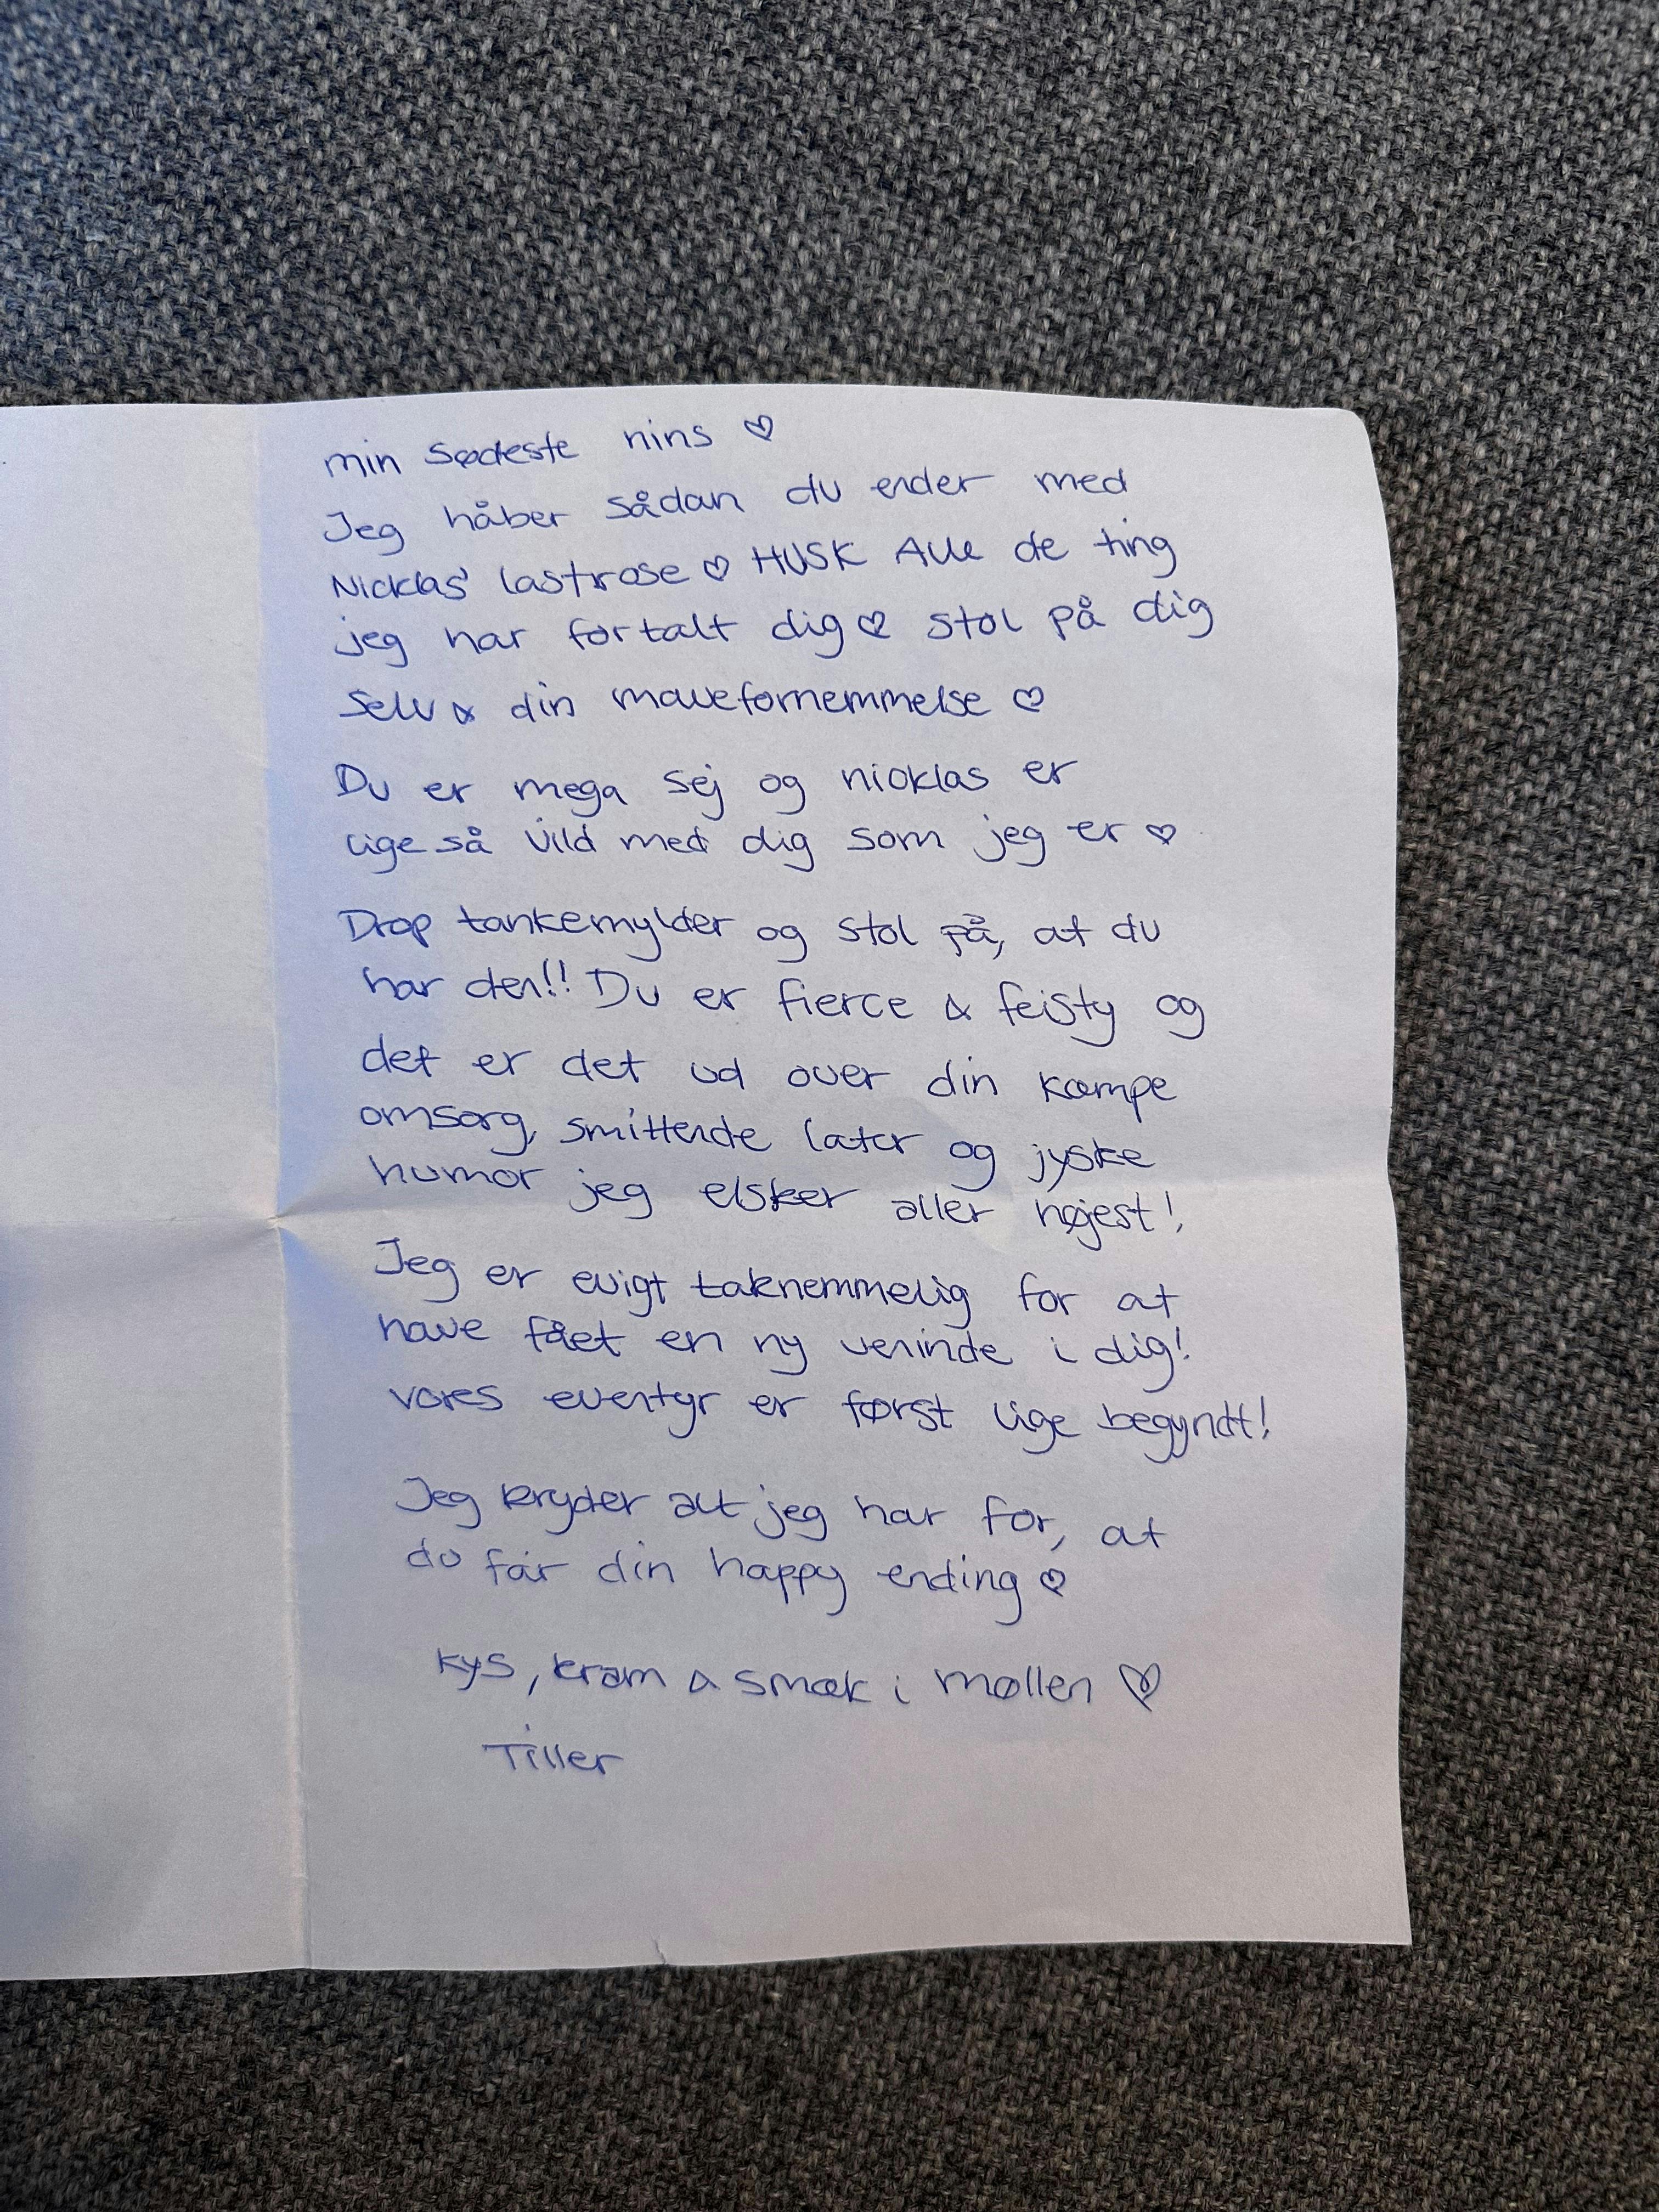 min sødeste nins ♡
Jeg håber sådan du ender med
Nicklas' lastrose ♡ HUSK Alle de ting
jeg har fortalt dig ♡ stol på dig
selv & din mavefornemmelse ♡
Du er mega sej og nicklas er
lige så vild med dig som jeg er ♡
Drop tankemylder og stol på, at du
har den!! Du er fierce & feisty og
det er det ud over din kæmpe
omsorg, smittende latter og jyske
humor jeg elsker aller højest!
Jeg er evigt taknemmelig for at
have fået en ny veninde i dig!
vores eventyr er først lige begyndt!
Jeg kryder alt jeg har for, at
du får din happy ending ♡
kys, kram & smæk i møllen ♡
Tiller